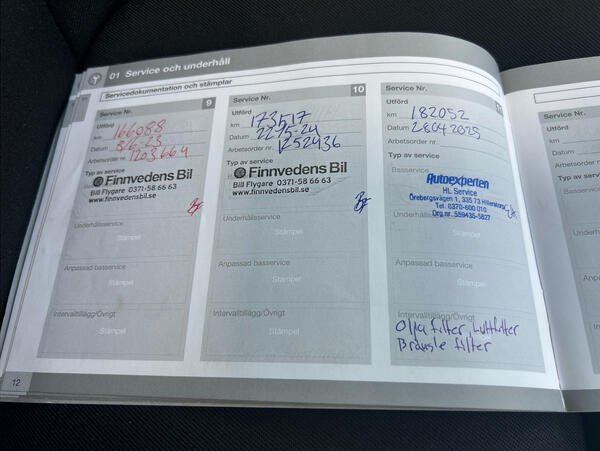 01 Service och underhåll
Servicedokumentation och stämplar
Service Nr. 9
Utförd
km 166088
Datum 8/6-23
Arbetsorder nr. 1203664
Typ av service
Finnvedens Bil
Bill Flygare 0371-58 66 63
www.finnvedensbil.se
Underhållsservice
Stämpel
Anpassad basservice
Stämpel
Intervalltillägg/Övrigt
Stämpel
Service Nr. 10
Utförd
km 173517
Datum 22/5-24
Arbetsorder nr. 1252436
Typ av service
Finnvedens Bil
Bill Flygare 0371-58 66 63
www.finnvedensbil.se
Underhållsservice
Stämpel
Anpassad basservice
Stämpel
Intervalltillägg/Övrigt
Stämpel
Service Nr.
Utförd
km 182052
Datum 28.04.2025
Arbetsorder nr.
Typ av service
Basservice
Autoexperten
HL Service
Örebergsvägen 1, 335 73 Hillerstorp
Tel. 0370-600 010
Org.nr. 559435-5827
Underhållsservice
Stämpel
Anpassad basservice
Stämpel
Intervalltillägg/Övrigt
Olja filter, Luftfilter
Bränsle filter
Service Nr.
Utförd
km
Datum
Arbetsorder
Typ av serv
Basservice
Underhålls
Anpassad
Intervalltill
12